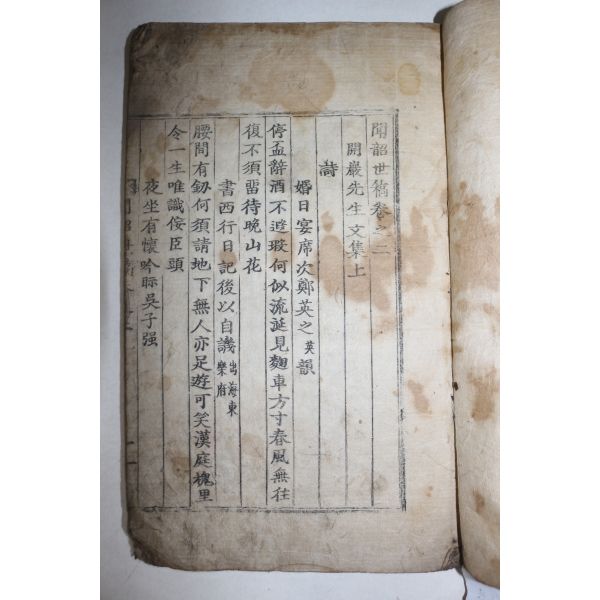 聞韶世稿卷之二
開巖先生文集上
詩
婚日宴席次鄭英之英韻
停盃辭酒不遑瑕何似流涎見麴車方寸春風無往
復不須留待晩山花
書西行日記後以自譏出海東樂府
腰間有劒何須請地下無人亦足遊可笑漢庭槐里
令一生唯識侫臣頭
夜坐有懷吟眎吳子强